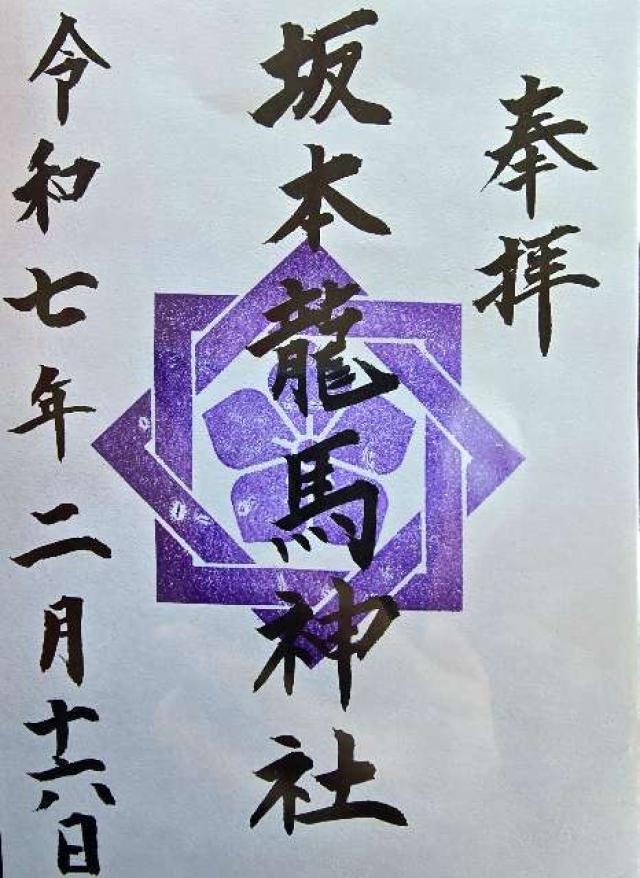 奉拝
坂本龍馬神社
令和七年二月十六日